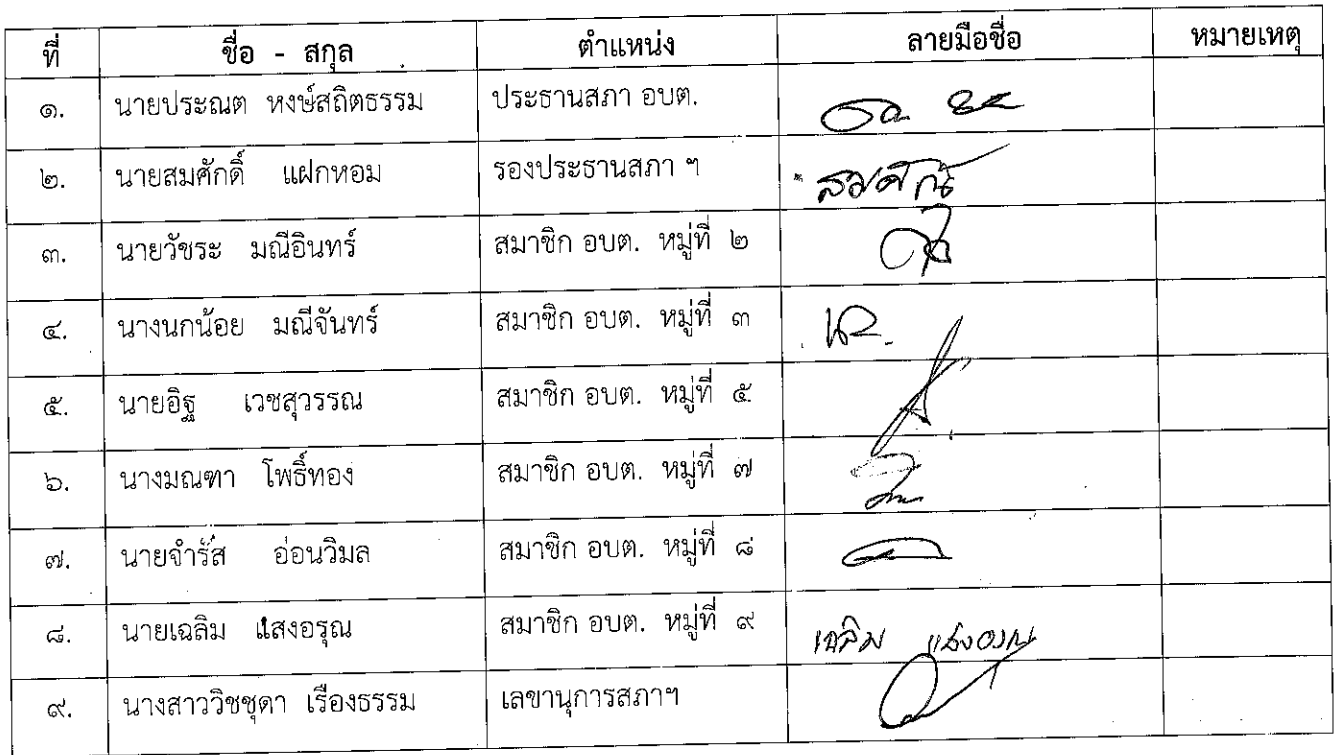 ที่ ชื่อ - สกุล ตำแหน่ง ลายมือชื่อ หมายเหตุ
๑. นายประณต หงษ์สถิตธรรม ประธานสภา อบต.
๒. นายสมศักดิ์ แฝกหอม รองประธานสภา ฯ สมศักดิ์
๓. นายวัชระ มณีอินทร์ สมาชิก อบต. หมู่ที่ ๒
๔. นางนกน้อย มณีจันทร์ สมาชิก อบต. หมู่ที่ ๓
๕. นายอิฐ เวชสุวรรณ สมาชิก อบต. หมู่ที่ ๕
๖. นางมณฑา โพธิ์ทอง สมาชิก อบต. หมู่ที่ ๗
๗. นายจำรัส อ่อนวิมล สมาชิก อบต. หมู่ที่ ๘
๘. นายเฉลิม แสงอรุณ สมาชิก อบต. หมู่ที่ ๙ เฉลิม แสงอรุณ
๙. นางสาววิชชุดา เรืองธรรม เลขานุการสภาฯ